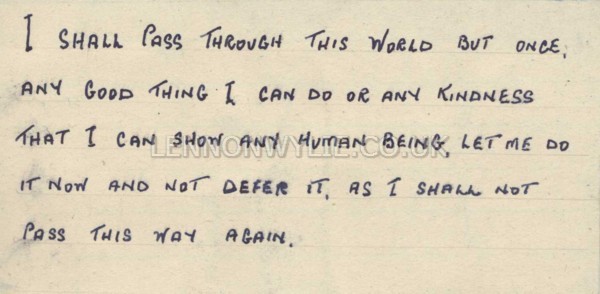 I SHALL PASS THROUGH THIS WORLD BUT ONCE.
ANY GOOD THING I CAN DO OR ANY KINDNESS
THAT I CAN SHOW ANY HUMAN BEING, LET ME DO
LENNONWYLIE.CO.UK
IT NOW AND NOT DEFER IT, AS I SHALL NOT
PASS THIS WAY AGAIN.